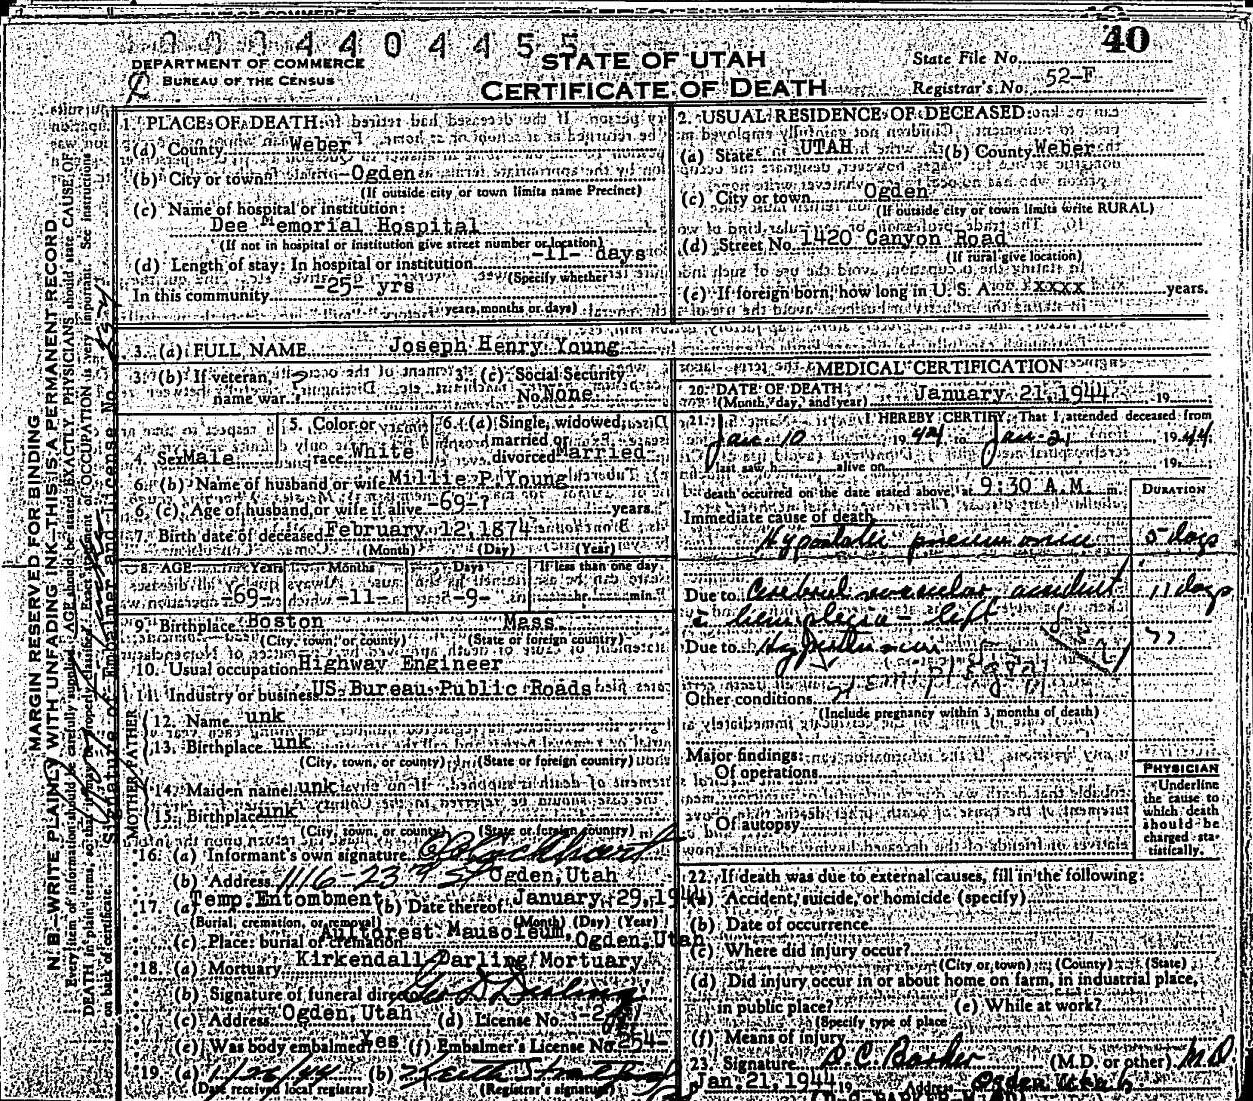 40
0 0 0 4 4 0 4 4 5 5
DEPARTMENT OF COMMERCE
BUREAU OF THE CENSUS
STATE OF UTAH
CERTIFICATE OF DEATH
State File No.
Registrar's No. 52-F
MARGIN RESERVED FOR BINDING
N. B.—WRITE PLAINLY WITH UNFADING INK—THIS IS A PERMANENT RECORD
Every item of information should be carefully supplied. AGE should be stated EXACTLY. PHYSICIANS should state CAUSE OF
DEATH in plain terms, so that it may be properly classified. Exact statement of OCCUPATION is very important. See instructions
on back of certificate.
Signature of Embalmer and License No.
1. PLACE OF DEATH:
(a) County Weber
(b) City or town -Ogden
(If outside city or town limits name Precinct)
(c) Name of hospital or institution:
Dee Memorial Hospital
(If not in hospital or institution give street number or location)
(d) Length of stay: In hospital or institution -11- days
(Specify whether
In this community -25- yrs
years, months or days)
2. USUAL RESIDENCE OF DECEASED:
(a) State UTAH (b) County Weber
(c) City or town Ogden
(If outside city or town limits write RURAL)
(d) Street No. 1420 Canyon Road
(If rural give location)
(e) If foreign born, how long in U. S. A. xxxx years.
3. (a) FULL NAME Joseph Henry Young
3. (b) If veteran, name war ? 3. (c) Social Security No. None
4. Sex Male 5. Color or race White 6. (a) Single, widowed, married or divorced Married-
6. (b) Name of husband or wife Millie P. Young
6. (c) Age of husband or wife if alive -69-? years
7. Birth date of deceased February 12, 1874
(Month) (Day) (Year)
8. AGE Years Months Days If less than one day
-69- -11- -9- hr. min.
9. Birthplace Boston Mass
(City, town, or county) (State or foreign country)
10. Usual occupation Highway Engineer
11. Industry or business US Bureau Public Roads
FATHER
12. Name unk
13. Birthplace unk
(City, town, or county) (State or foreign country)
MOTHER
14. Maiden name unk
15. Birthplace unk
(City, town, or county) (State or foreign country)
16. (a) Informant's own signature
(b) Address 1116-23 St Ogden, Utah
17. (a) Temp. Entombment (b) Date thereof January, 29, 1944
(Burial, cremation, or removal) (Month) (Day) (Year)
(c) Place: burial or cremation Aultorest Mausoleum, Ogden, Utah
18. (a) Mortuary Kirkendall-Darling Mortuary
(b) Signature of funeral director Geo D Darling
(c) Address Ogden, Utah (d) License No.
(e) Was body embalmed? Yes (f) Embalmer's License No. 254-
19. (a) 1/26/44 (b)
(Date received local registrar) (Registrar's signature)
MEDICAL CERTIFICATION
20. DATE OF DEATH: January, 21, 1944 19
(Month, day, and year)
21. I HEREBY CERTIFY, That I attended deceased from
Jan 10 1944 to Jan 21 1944
last saw h alive on 19
death occurred on the date stated above, at 9:30 A.M. m.
DURATION
Immediate cause of death
Hypostatic pneumonia 5 days
Due to Cerebral vascular accident 11 days
c hemiplegia - left
Due to Hypertension ??
Hemiplegia
Other conditions
(Include pregnancy within 3 months of death)
Major findings:
Of operations
Of autopsy
PHYSICIAN
Underline the cause to which death should be charged statistically.
22. If death was due to external causes, fill in the following:
(a) Accident, suicide, or homicide (specify)
(b) Date of occurrence
(c) Where did injury occur?
(City or town) (County) (State)
(d) Did injury occur in or about home on farm, in industrial place,
in public place? (e) While at work?
(Specify type of place
(f) Means of injury
23. Signature D. C. Barker (M.D. or other) M.D
Jan. 21, 1944 19 Address Ogden Utah